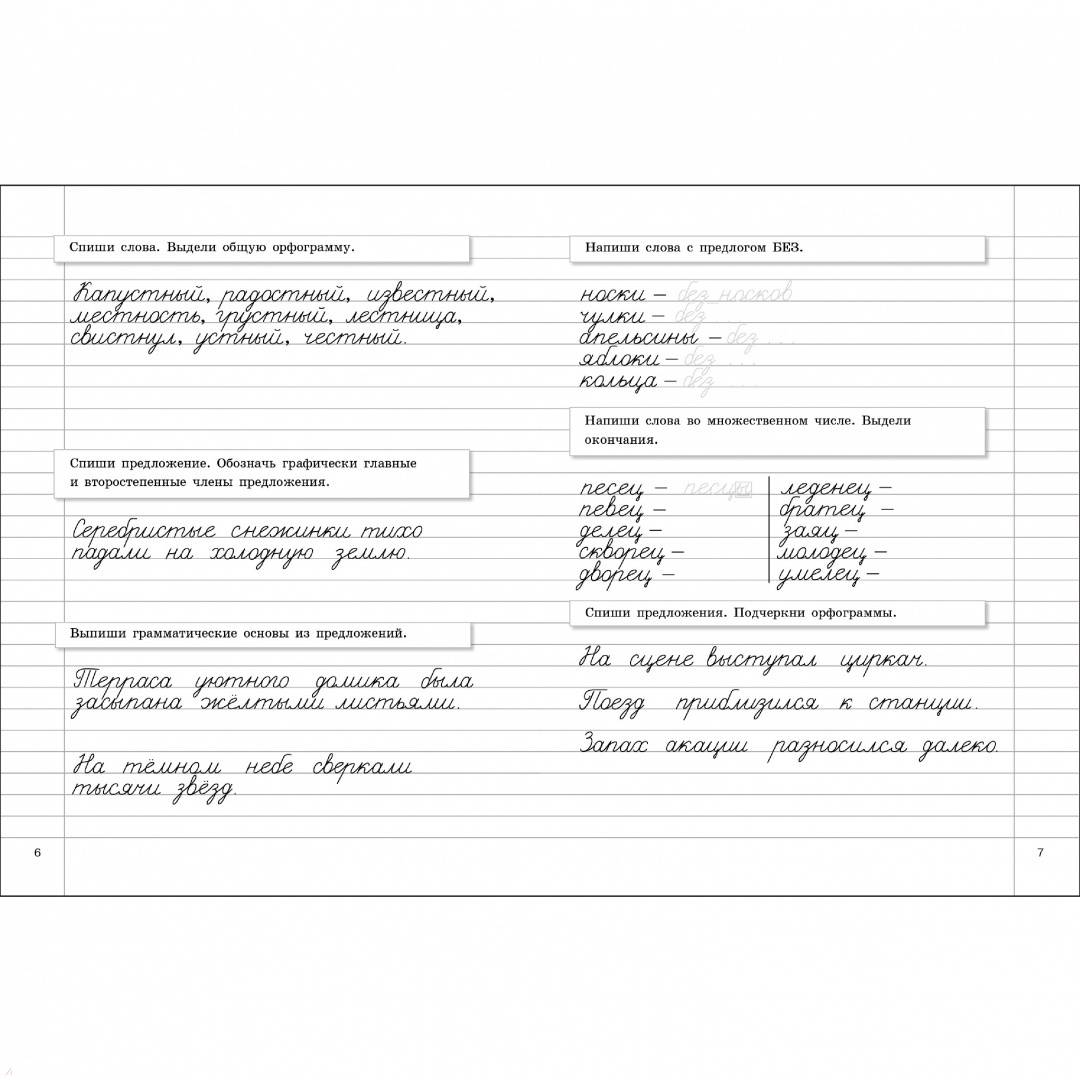 Спиши слова. Выдели общую орфограмму.
Капустный, радостный, известный,
местность, грустный, лестница,
свистнул, устный, честный.
Спиши предложение. Обозначь графически главные
и второстепенные члены предложения.
Серебристые снежинки тихо
падали на холодную землю.
Выпиши грамматические основы из предложений.
Терраса уютного домика была
засыпана жёлтыми листьями.
На тёмном небе сверкали
тысячи звёзд.
6
Напиши слова с предлогом БЕЗ.
носки – без носков
чулки – без ...
апельсины – без ...
яблоки – без ...
кольца – без ...
Напиши слова во множественном числе. Выдели
окончания.
песец – песцы
певец –
делец –
скворец –
дворец –
леденец –
братец –
заяц –
молодец –
умелец –
Спиши предложения. Подчеркни орфограммы.
На сцене выступал циркач.
Поезд приблизился к станции.
Запах акации разносился далеко.
7